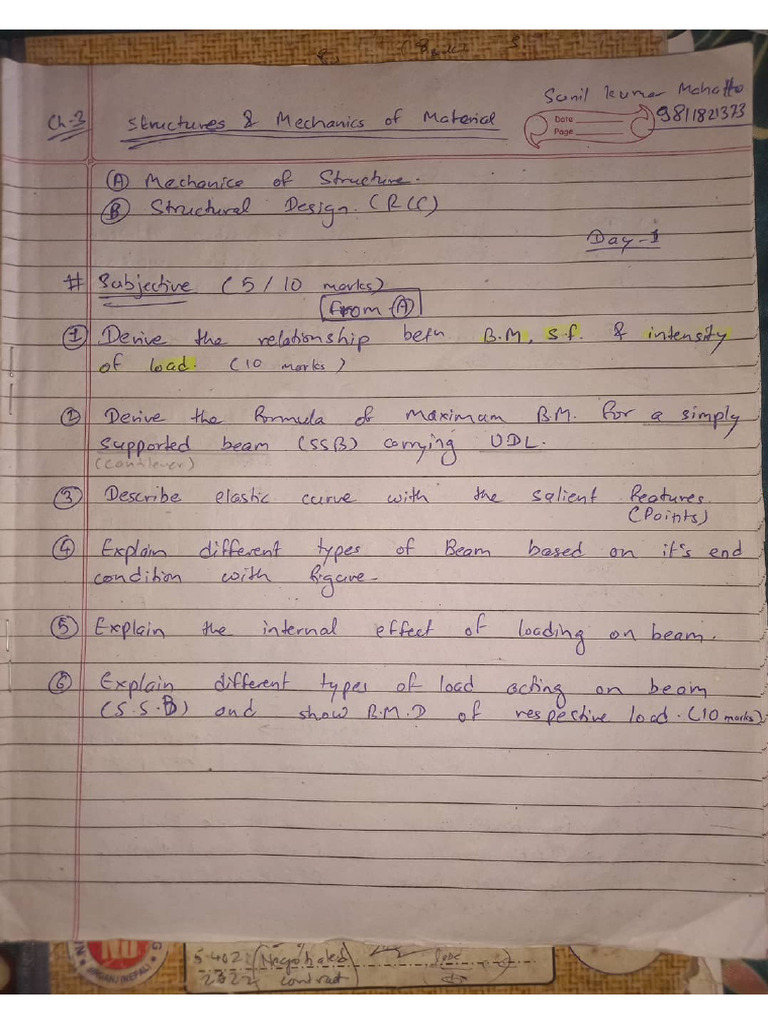 Sunil Kumar Mahatto
Ch-3 Structures & Mechanics of Material
Date
Page
9811821373
(A) Mechanics of Structure.
(B) Structural Design. (RCC)
Day-1
# Subjective (5/10 marks)
From (A)
(1) Derive the relationship betn B.M, S.f. & intensity
of load. (10 marks)
(2) Derive the formula of maximum B.M. for a simply
supported beam (SSB) carrying UDL.
(Cantilever)
(3) Describe elastic curve with the salient features.
(Points)
(4) Explain different types of Beam based on it's end
condition with figure.
(5) Explain the internal effect of loading on beam.
(6) Explain different types of load acting on beam
(S.S.B) and show B.M.D of respective load. (10 marks)
BIRGANJ (NEPAL)
5-402
2322
Negotiated
contract